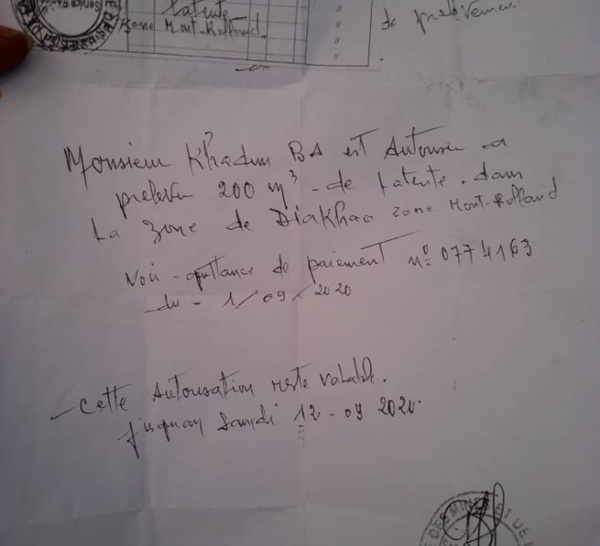 latente
Zone Mont-Rolland.
de prelevement
Monsieur Khadim BA est Autorisé a
prelever 200 m³ - de Latente. dans
La zone de Diakhao zone Mont-Rolland
Voir - quittance de paiement n° 0774163
- du - 1/09/2020
- Cette Autorisation reste valable.
jusquau Samedi 12 - 09 2020.
DES MINES ET DE